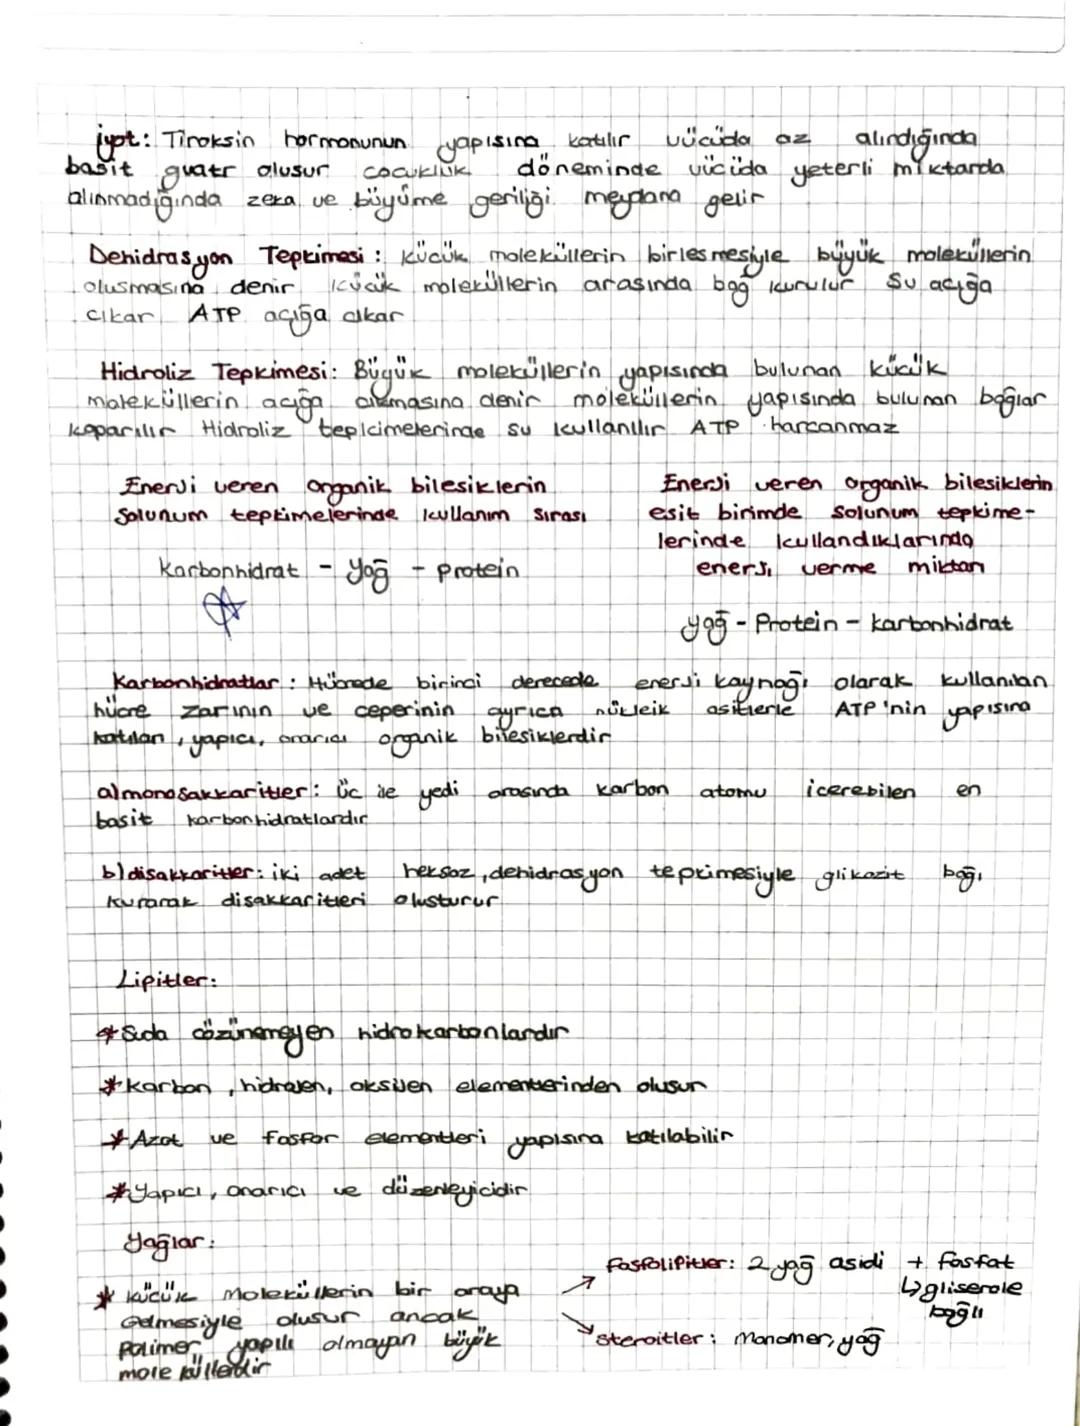 iyot: Tiroksin hormonunun yapısına katılır vücüda az alındığında
basit guatr olusur cocukluk döneminde vücüda yeterli miktarda
alınmadığında zeka ve büyüme geriliği meydana gelir
Dehidrasyon Tepkimesi : Kücük moleküllerin birlesmesiyle büyük moleküllerin
olusmasına denir kücük moleküllerin arasında bağ kurulur Su acığa
cıkar ATP acığa cıkar
Hidroliz Tepkimesi: Büyük moleküllerin yapısında bulunan kücük
moleküllerin acığa cıkmasına denir moleküllerin yapısında bulunan bağlar
koparılır Hidroliz tepkimelerinde su kullanılır ATP harcanmaz
Enerji veren organik bilesiklerin
Solunum tepkimelerinde kullanım sırası
Karbonhidrat - Yağ - protein
Enerji veren organik bilesiklerin
esit birimde solunum tepkime-
lerinde kullandıklarında
enerji verme miktarı
yağ - Protein - karbonhidrat
Karbonhidratlar : Hücrede birinci derecede enerji kaynağı olarak kullanılan
hücre zarının ve ceperinin ayrıca nükleik asitlerle ATP'nin yapısına
katılan, yapıcı, onarıcı organik bilesiklerdir
a) monosakkaritler: üc ile yedi arasında karbon atomu icerebilen en
basit karbonhidratlardır
b) disakkaritler: iki adet heksoz, dehidrasyon tepkimesiyle glikozit bağı
kurarak disakkaritleri olusturur
Lipitler:
* Suda cözünemeyen hidrokarbonlardır
* Karbon, hidrojen, oksijen elementlerinden olusur
* Azot ve fosfor elementleri yapısına katılabilir
* Yapıcı, onarıcı ve düzenleyicidir
Yağlar:
* Kücük Moleküllerin bir araya
Gelmesiyle olusur ancak
Polimer yapılı olmayan büyük
moleküllerdir
→ fosfolipitler: 2 yağ asidi + fosfat
↳ gliserole
bağlı
→ steroitler: Monomer, yağ